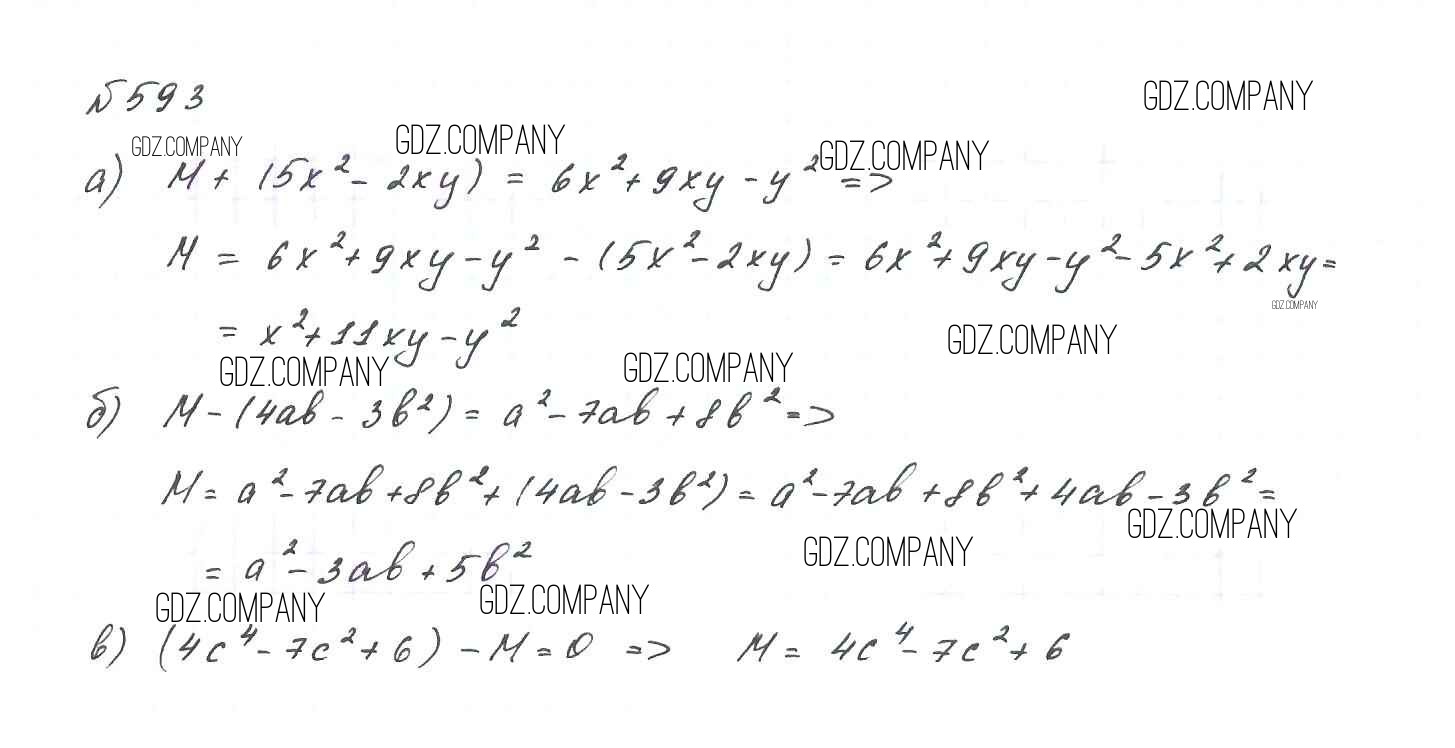 №593
GDZ.COMPANY
GDZ.COMPANY GDZ.COMPANY GDZ.COMPANY
а) M + (5x² - 2xy) = 6x² + 9xy - y² =>
M = 6x² + 9xy - y² - (5x² - 2xy) = 6x² + 9xy - y² - 5x² + 2xy =
GDZ.COMPANY
= x² + 11xy - y²
GDZ.COMPANY
GDZ.COMPANY GDZ.COMPANY
б) M - (4ab - 3b²) = a² - 7ab + 8b² =>
M = a² - 7ab + 8b² + (4ab - 3b²) = a² - 7ab + 8b² + 4ab - 3b² =
GDZ.COMPANY
GDZ.COMPANY
= a² - 3ab + 5b²
GDZ.COMPANY GDZ.COMPANY
в) (4c⁴ - 7c² + 6) - M = 0 => M = 4c⁴ - 7c² + 6